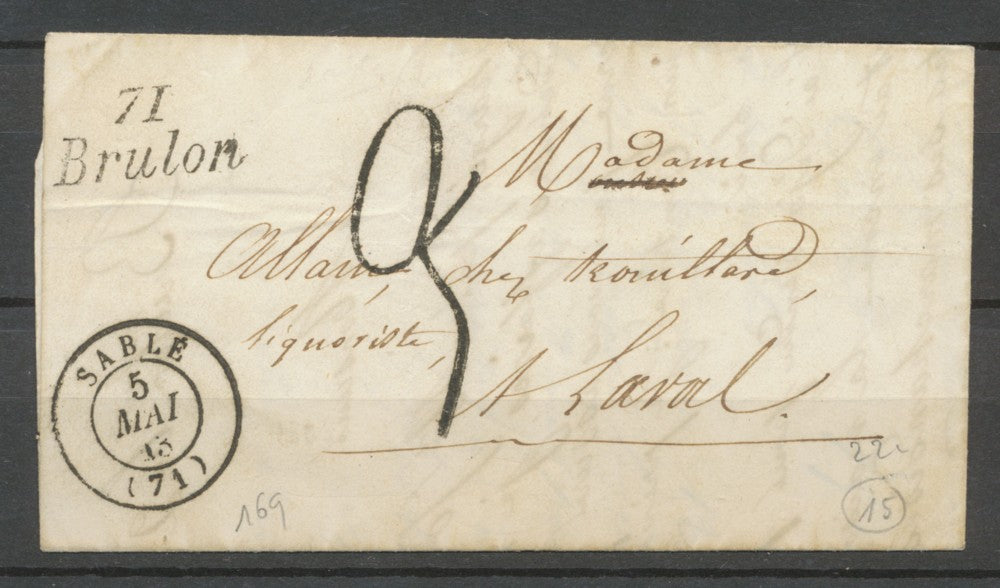 71
Brulon
Madame
Allain, chez
liquoriste,
A Laval.
SABLÉ
5
MAI
45
(71)
169
22
15